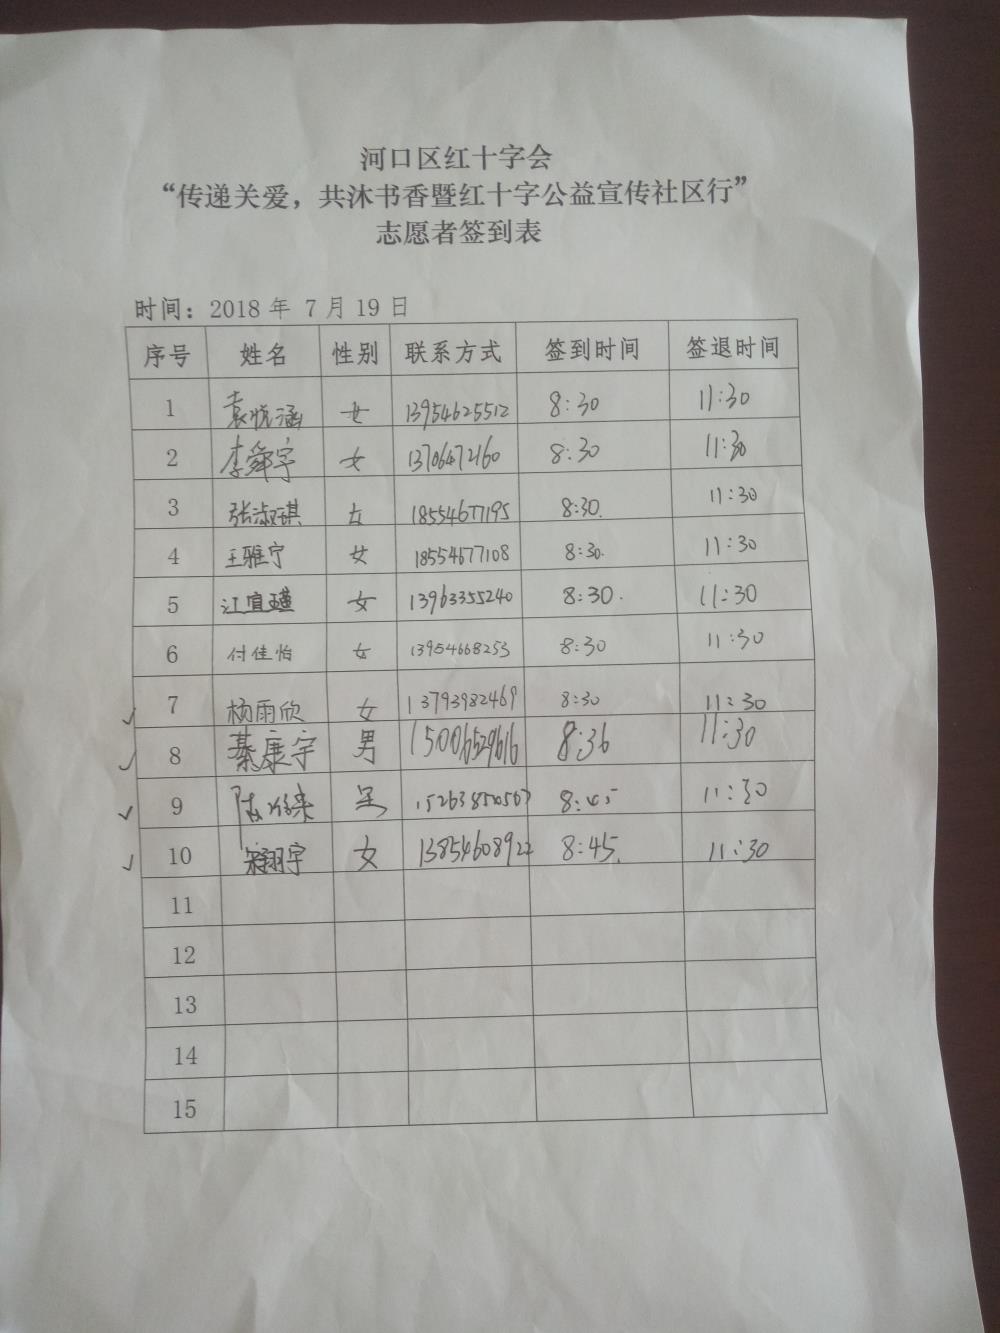 河口区红十字会
“传递关爱，共沐书香暨红十字公益宣传社区行”
志愿者签到表
时间：2018 年 7 月 19 日
序号 姓名 性别 联系方式 签到时间 签退时间
1 袁悦涵 女 13954625512 8:30 11:30
2 李舜宇 女 13706472160 8:30 11:30
3 张淑琪 女 18554677195 8:30. 11:30
4 王雅宁 女 18554677108 8:30. 11:30
5 江宜瑾 女 13963355240 8:30. 11:30
6 付佳怡 女 13954668253 8:30 11:30
✓ 7 杨雨欣 女 13793982469 8:30 11:30
✓ 8 綦康宇 男 15006529616 8:36 11:30
✓ 9 男 15263850567 8:45 11:30
✓ 10 翔宇 女 13854608922 8:45. 11:30
11
12
13
14
15